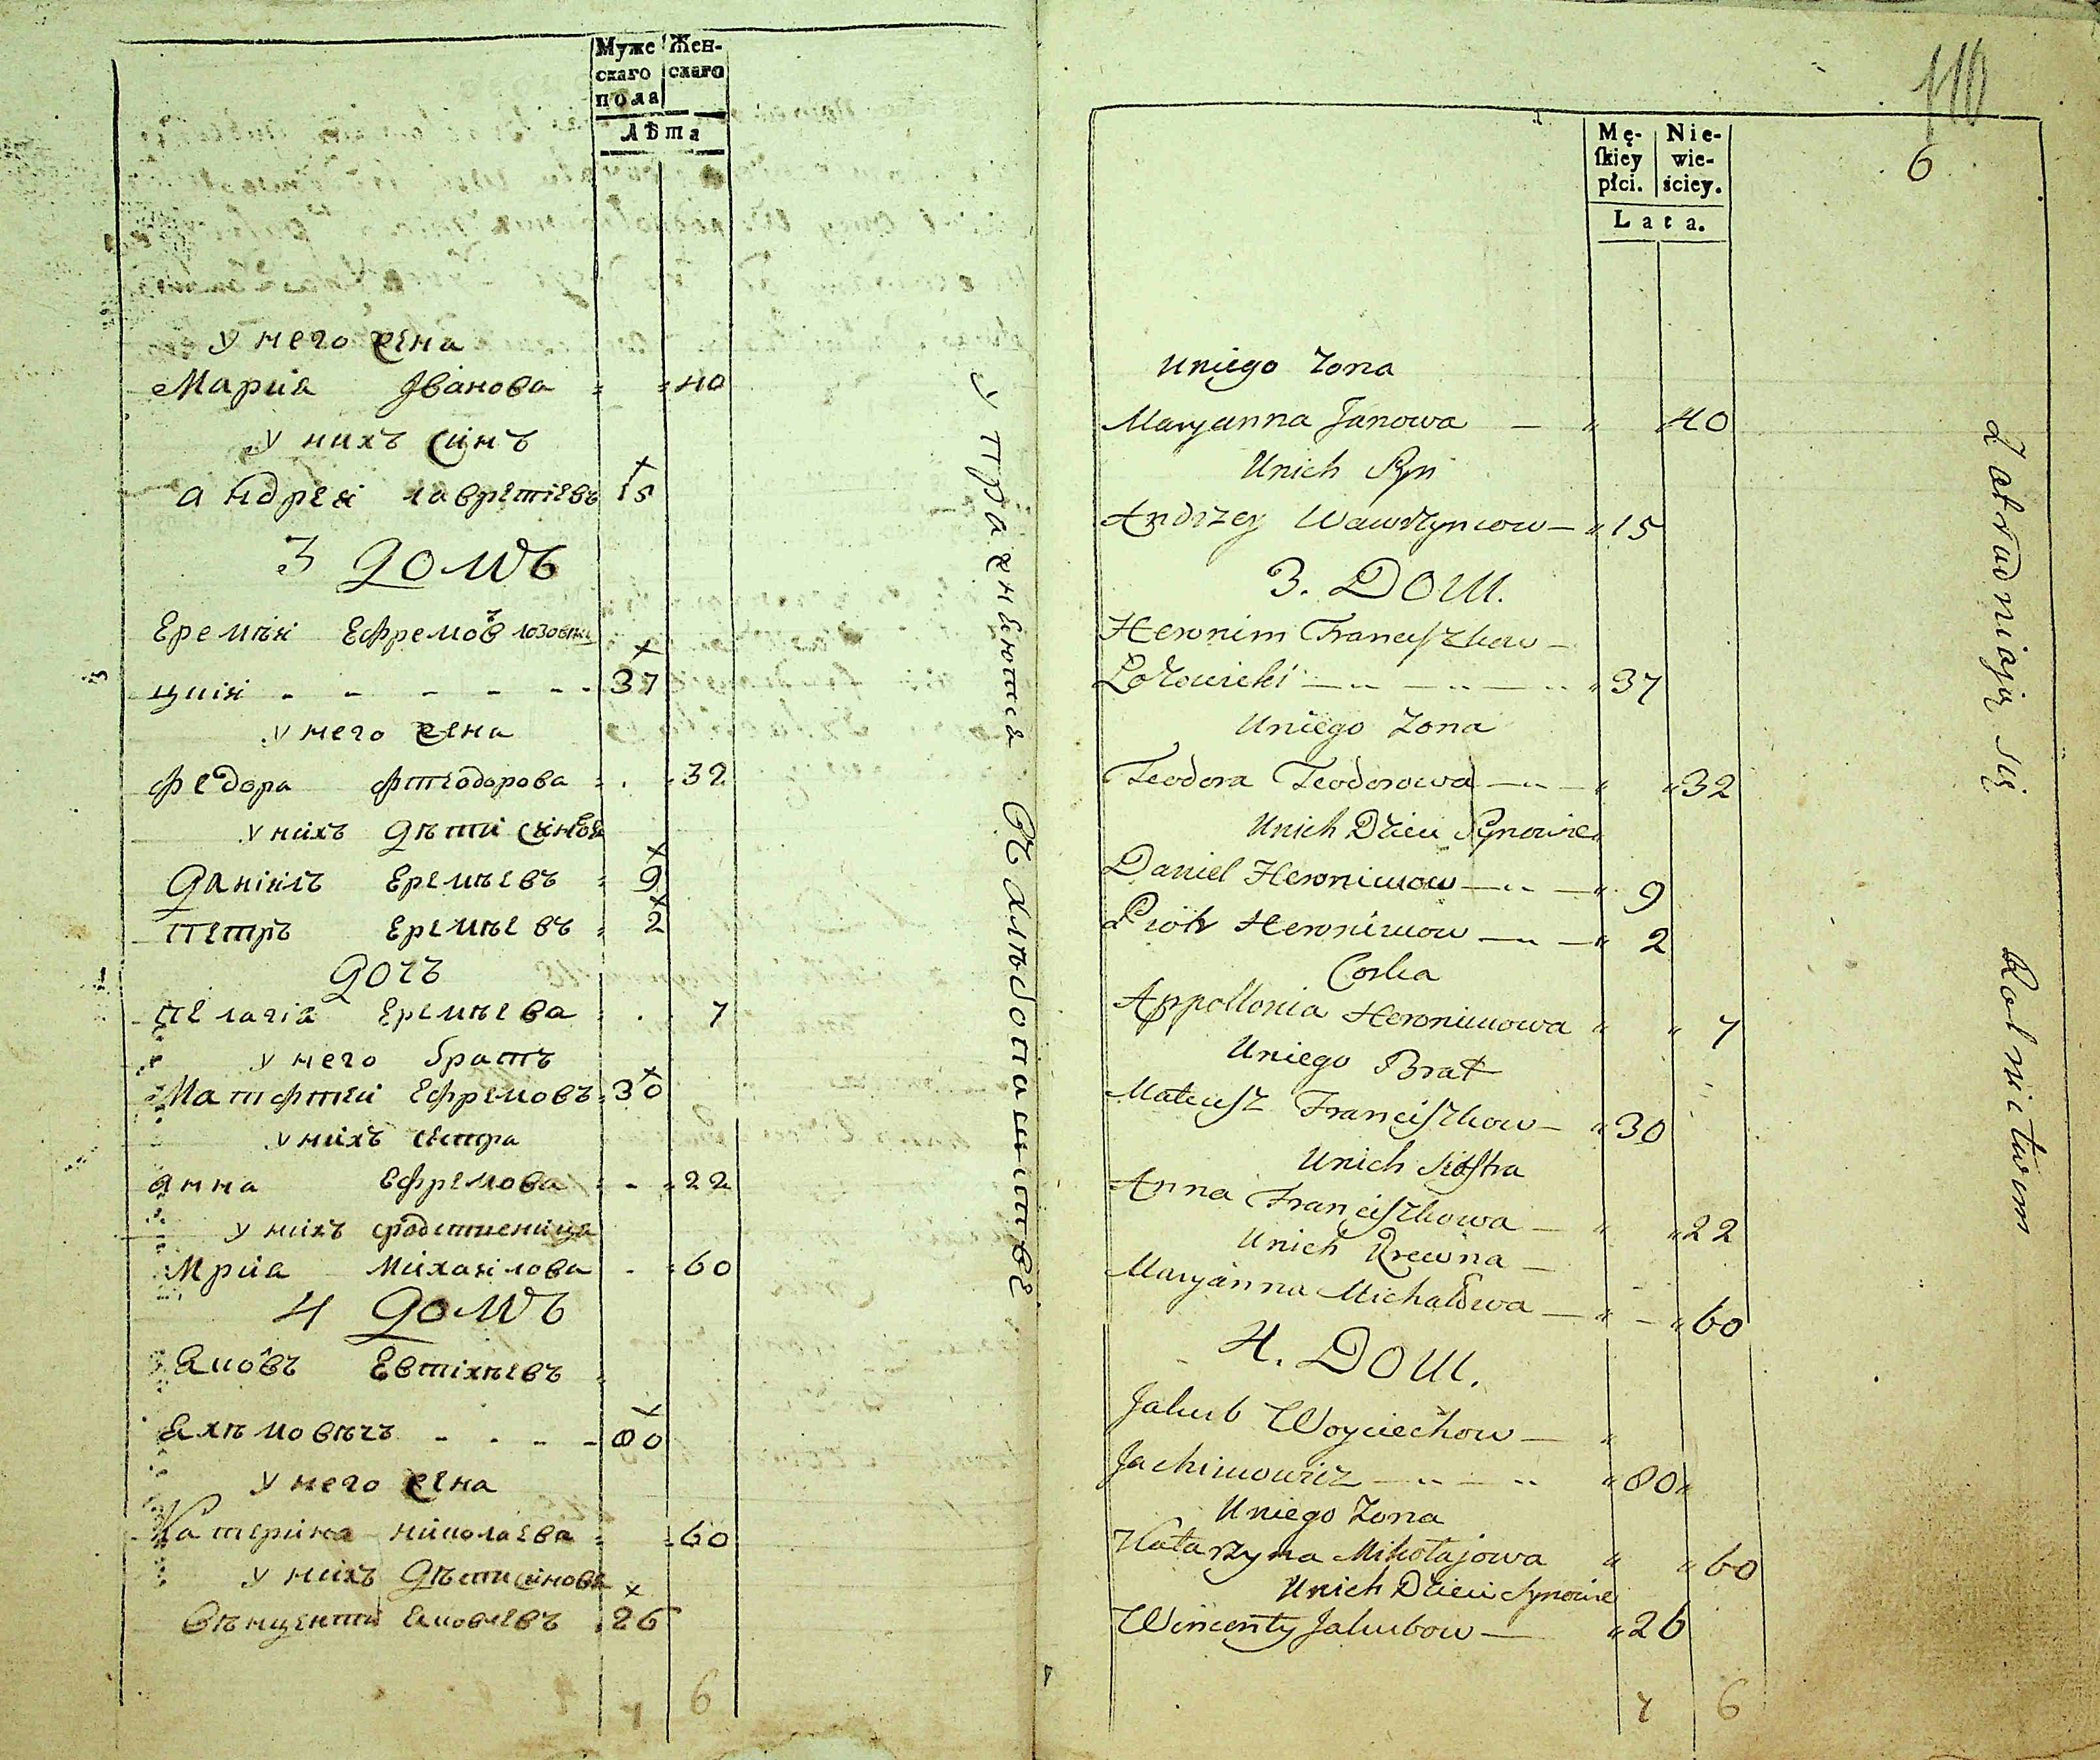 Муже Жен-
скаго скаго
пола
Лѣта
У него жена
Мариа Iванова 40
У нихъ синъ
андреи лаврѣтiевъ 15
3 Домъ
Еремѣи Ефремовъ лозовиц
3
цкiи 37
У него жена
Федора Фтеодорова 32
У нихъ Дѣти синове
Данiилъ Еремѣевъ 9
Петръ Еремѣевъ 2
Дочъ
Пелагiа Еремѣева 7
У него братъ
Матфтеи Ефремовъ 30
У нихъ сестра
анна Ефремова 22
У нихъ сродственица
Мриа Михаiлова 60
4 Домъ
Яковъ Евтiхѣевъ
Яхѣмовѣчъ 80
У него жена
Катерина николаева 60
У нихъ Дѣти синове
Вѣнценти Яковлевъ 26
7 6
Упражняютса въ хлѣбопашитве
110
6
Mę- Nie-
ſkiey wie-
płci. ściey.
Lata.
Uniego Zona
Maryanna Janowa — " 40
Unich Syn
Andrzey Wawrzyncow — " 15
3. Dom.
Heronim Franciſzkow —
Łozowicki " 37
Uniego Zona
Teodora Teodorowa " " 32
Unich Dzieci Synowie
Daniel Heronimow " 9
Piotr Heronimow " 2
Corka
Appollonia Heronimowa " " 7
Uniego Brat
Mateuſz Franciſzkow — " 30
Unich Sioſtra
Anna Franciſzkowa — " " 22
Unich Krewna —
Maryanna Michałowa — " — " 60
4. Dom.
Jakub Woyciechow — "
Jachimowicz " 80 "
Uniego Zona
Katarzyna Mikołajowa " " 60
Unich Dzieci Synowie
Wincenty Jakubow — " 26
7 6
Zatrudniają się Rolnictwem